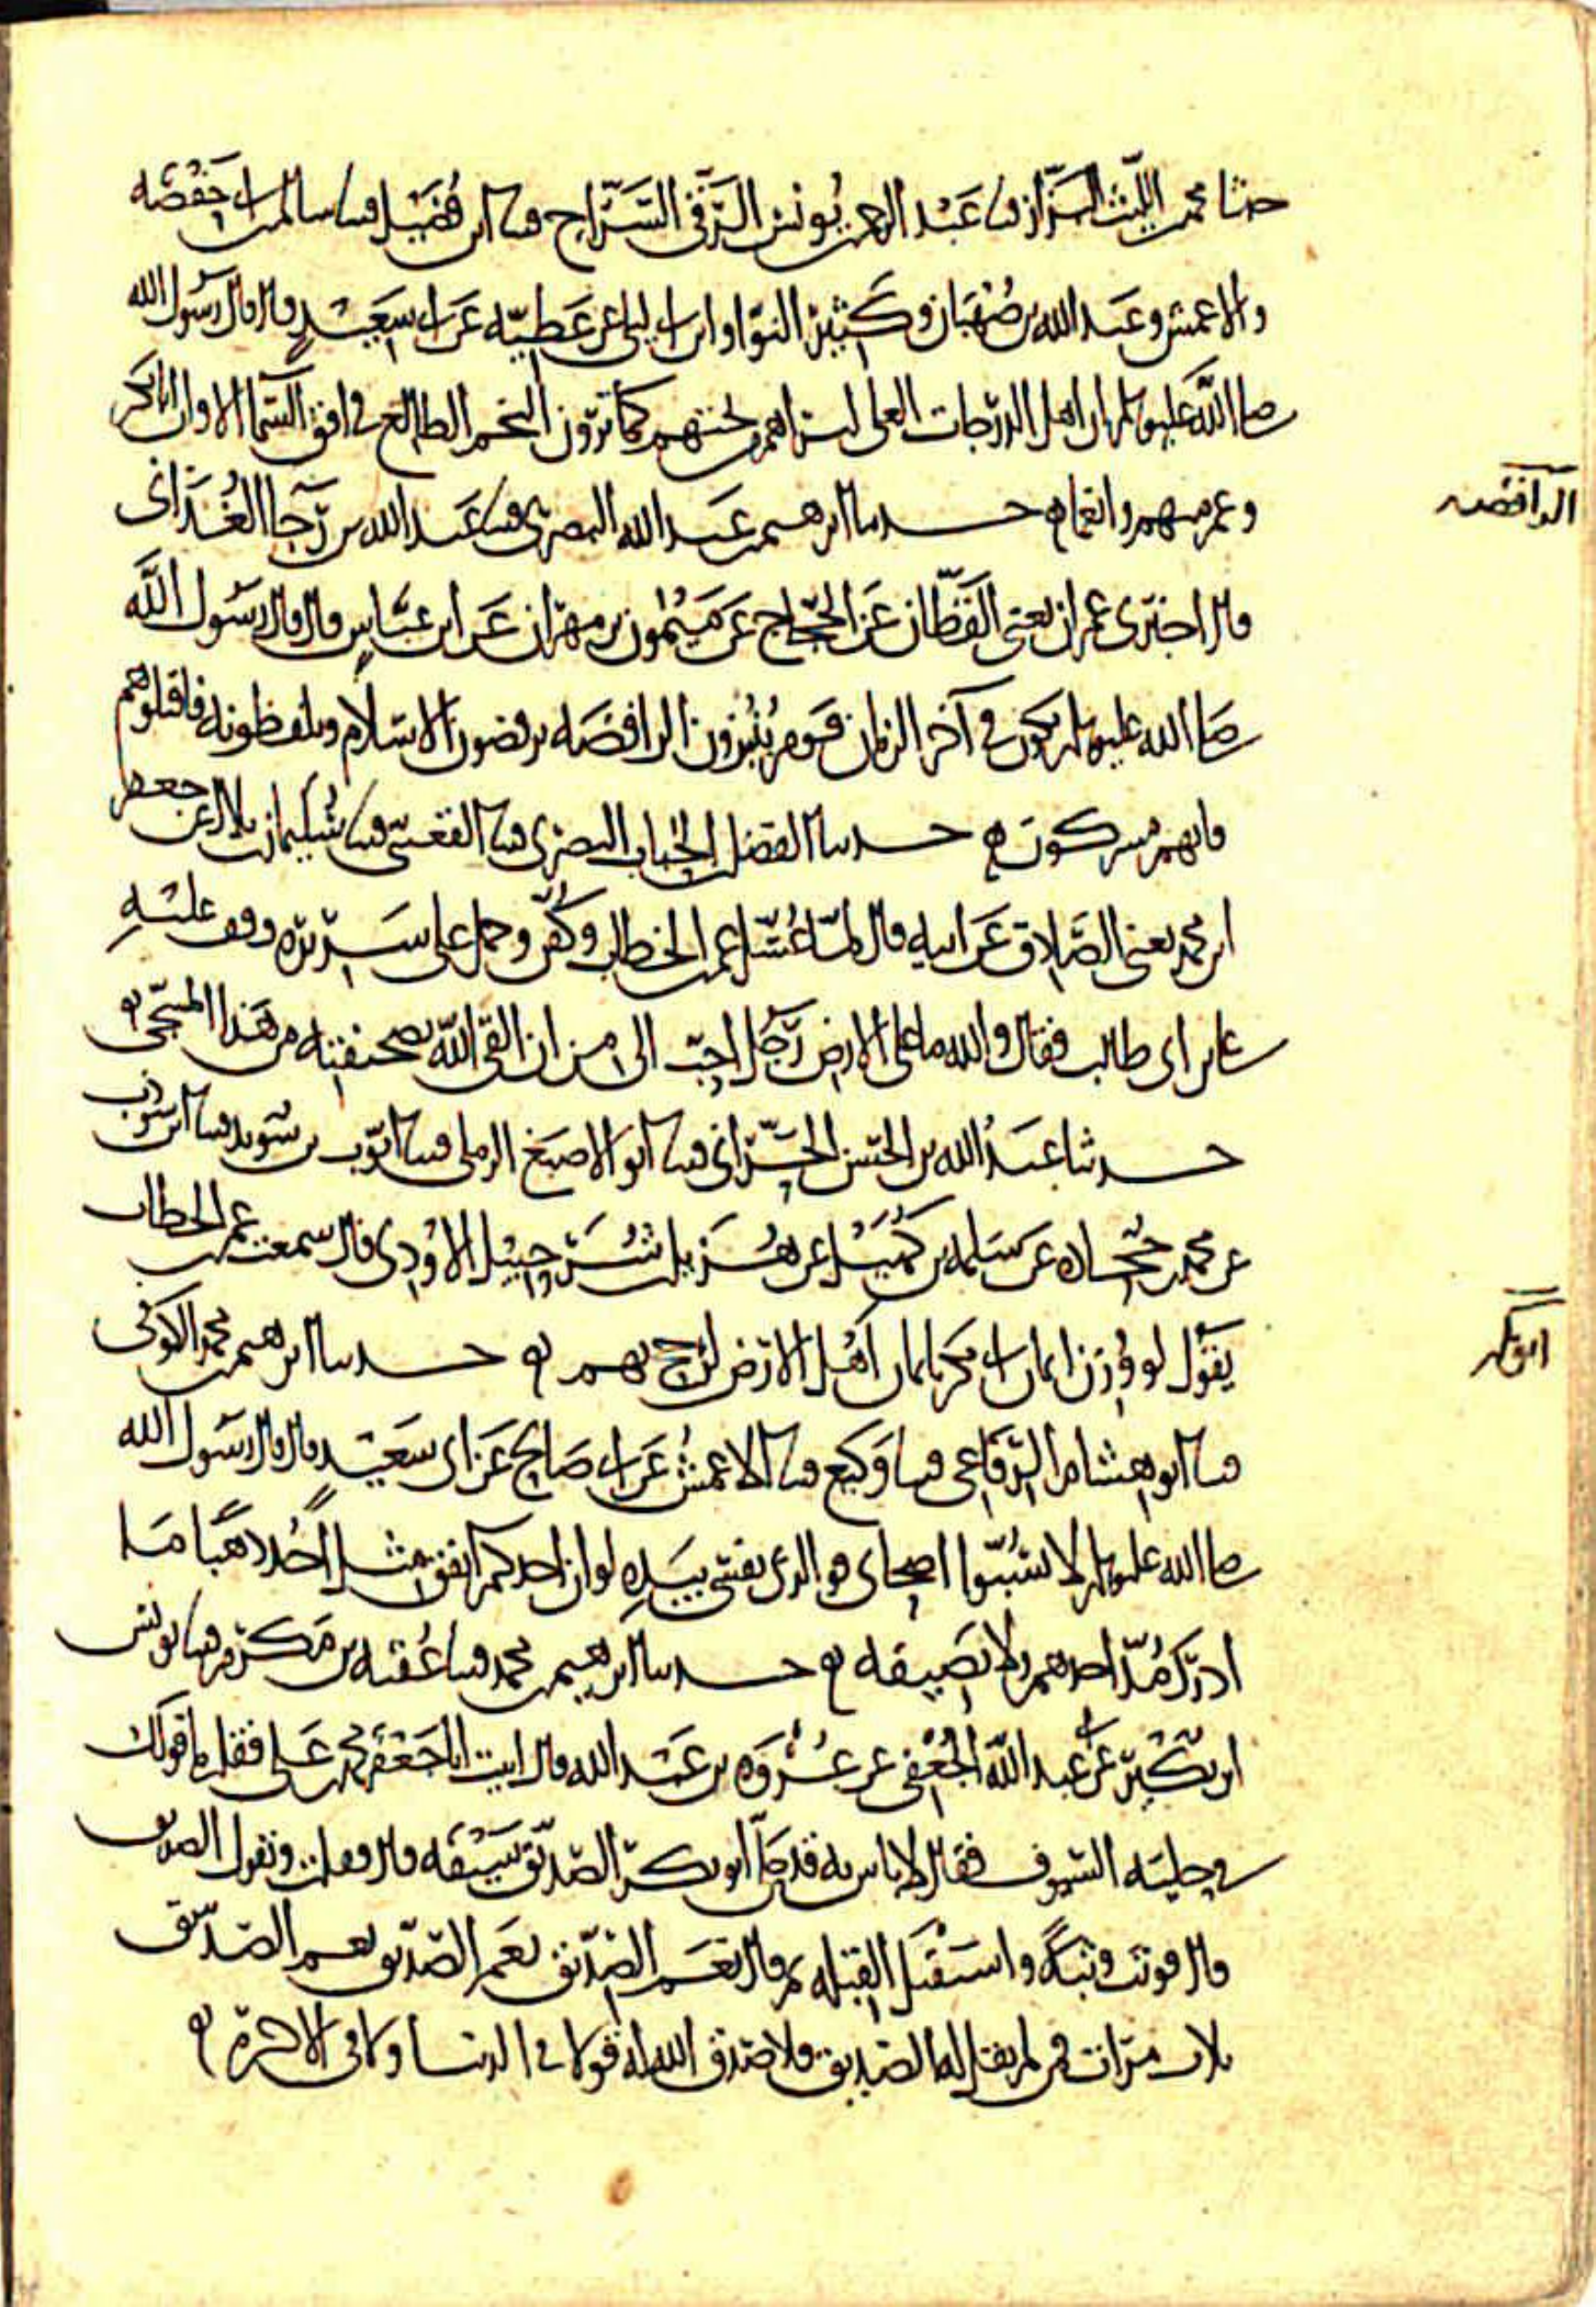 حدثنا محمد بن الليث البزاز قثنا عبد الرحمن بن يونس الرقي السراج قثنا ابن فضيل قثنا سالم بن ابي حفصه
والاعمش وعبد الله بن صهبان وكثير النوا وابن ابي ليلى عن عطيه عن ابي سعيد قال قال رسول الله
صلى الله عليه وسلم ان اهل الدرجات العلى ليراهم من تحتهم كما ترون النجم الطالع في افق السما الا وان ابا بكر
وعمر منهم وانعما حدثنا ابرهيم بن عبد الله البصري قثنا عبد الله بن رجا الغداني
الرافضه
قال اخبرني عمران يعني القطان عن الحجاج عن ميمون بن مهران عن ابن عباس قال قال رسول الله
صلى الله عليه وسلم يكون في آخر الزمان قوم ينبزون الرافضه يرفضون الاسلام ويلفظونه فاقتلوهم
فانهم مشركون حدثنا الفضل بن الحباب البصري قثنا القعنبي قثنا سليمان بن بلال عن جعفر
ابن محمد يعني الصادق عن ابيه قال لما غسل عمر بن الخطاب وكفن وحمل على سريره وقف عليه
علي بن ابي طالب فقال والله ما على الارض رجل احب الي من ان القى الله بصحيفته من هذا المسجى
حدثنا عبد الله بن الحسن الحراني قثنا ابو الاصبغ الرملي قثنا ايوب بن سويد قثنا ابن شوذب
عن محمد بن جحاده عن سلمه بن كهيل عن هزيل بن شرحبيل الاودي قال سمعت عمر بن الخطاب
يقول لو وزن ايمان ابي بكر بايمان اهل الارض لرجح بهم حدثنا ابرهيم بن محمد الكوفي
ابو بكر
قثنا ابو هشام الرفاعي قثنا وكيع قثنا الاعمش عن ابي صالح عن ابي سعيد قال قال رسول الله
صلى الله عليه وسلم لا تسبوا اصحابي فو الذي نفسي بيده لو ان احدكم انفق مثل احد ذهبا ما
ادرك مد احدهم ولا نصيفه حدثنا ابرهيم بن محمد قثنا عقبه بن مكرم قثنا يونس
ابن بكير عن ابي عبد الله الجعفي عن عروه بن عبد الله قال اتيت ابا جعفر محمد بن علي فقلت ما قولك
في حليه السيوف فقال لا باس به قد حلى ابو بكر الصديق سيفه قال قلت وتقول الصديق
قال فوثب وثبة واستقبل القبله ثم قال نعم الصديق نعم الصديق نعم الصديق
ثلاث مرات فمن لم يقل له الصديق فلا صدق الله له قولا في الدنيا ولا في الاخرة